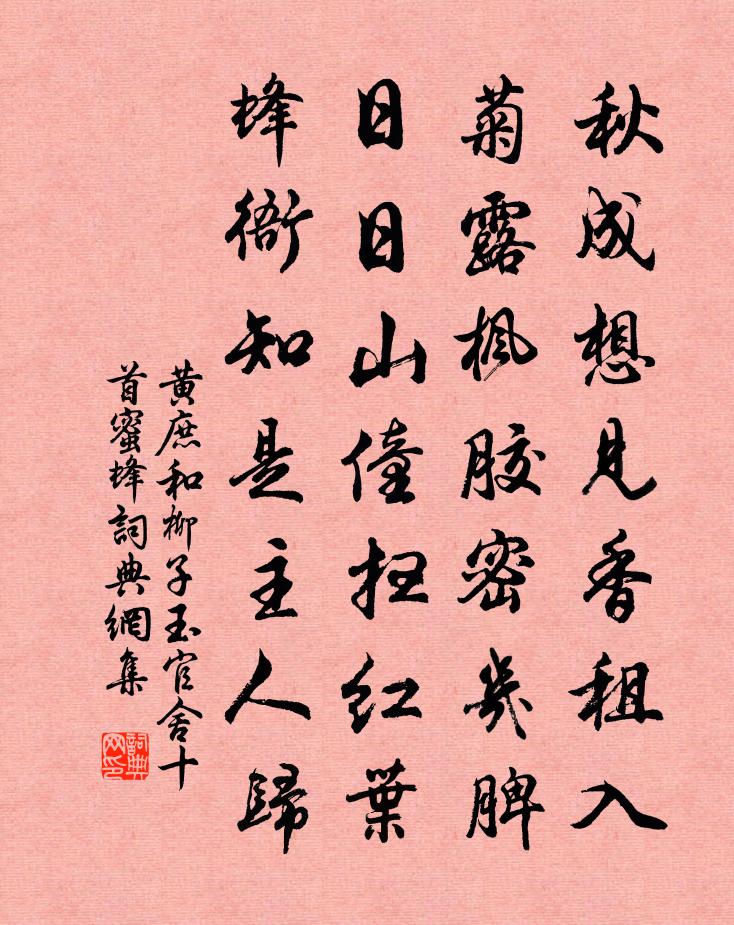 秋成想見香租入
菊露楓膠密幾脾
日日山僮掃紅葉
蜂衙知是主人歸
黃庶和柳子玉官舍十
首蜜蜂詞典網集
詞典
网印